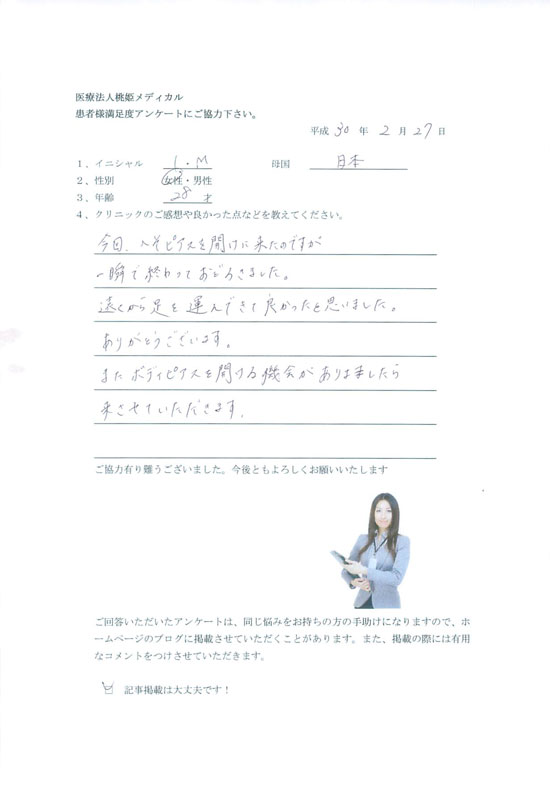 医療法人桃姫メディカル
患者様満足度アンケートにご協力下さい。
平成 30 年 2 月 27 日
1、イニシャル I・M 母国 日本
2、性別 女性・男性
3、年齢 28 才
4、クリニックのご感想や良かった点などを教えてください。
今回、へそピアスを開けに来たのですが
一瞬で終わっておどろきました。
遠くから足を運んできて良かったと思いました。
ありがとうございます。
またボディピアスを開ける機会がありましたら
来させていただきます。
ご協力有り難うございました。今後ともよろしくお願いいたします
ご回答いただいたアンケートは、同じ悩みをお持ちの方の手助けになりますので、ホ
ームページのブログに掲載させていただくことがあります。また、掲載の際には有用
なコメントをつけさせていただきます。
記事掲載は大丈夫です！